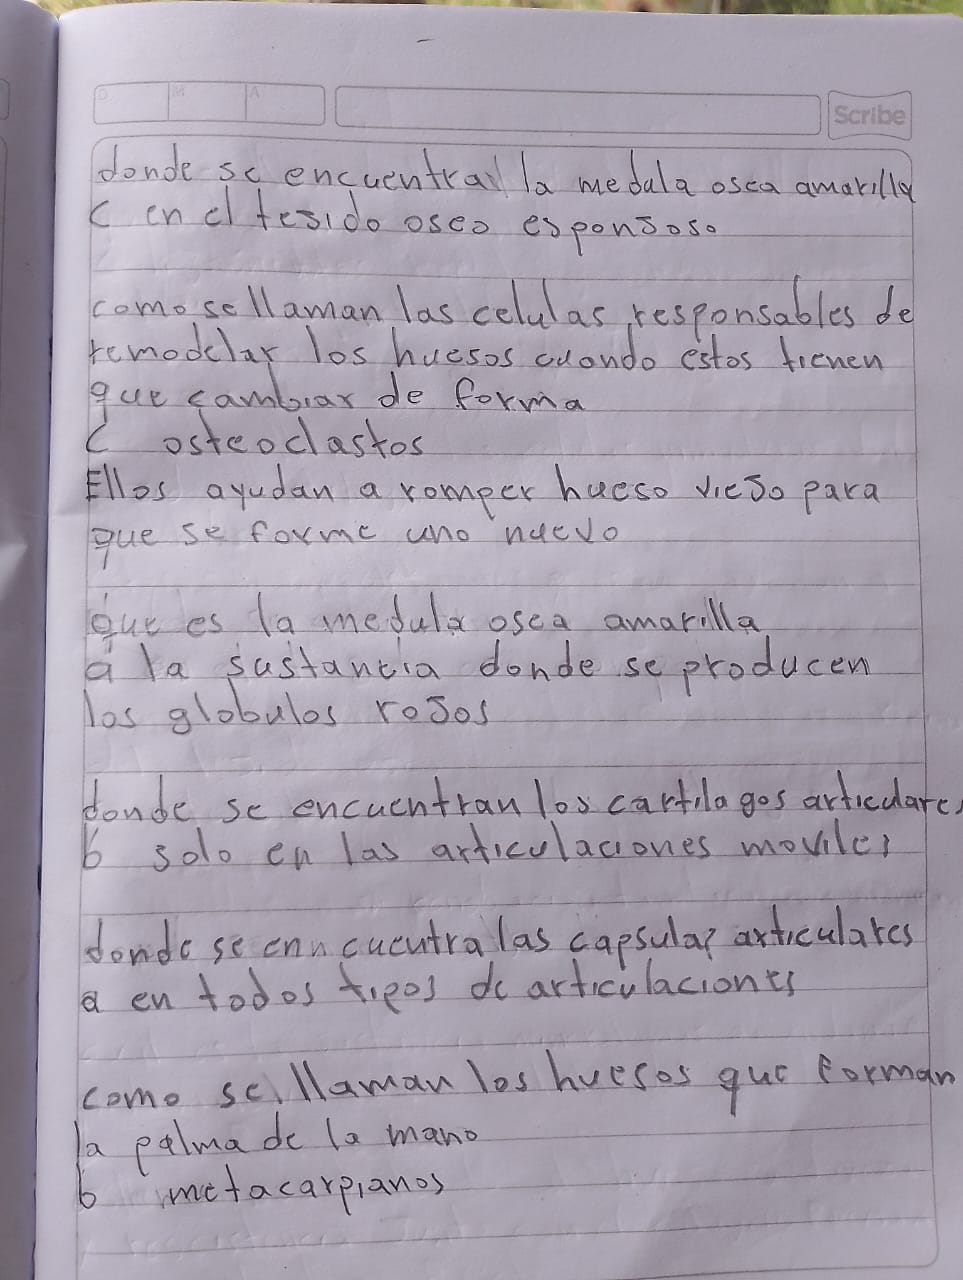 D M A
Scribe
donde se encuentra la medula osea amarilla
C en el tesido oseo esponJoso
como se llaman las celulas responsables de
remodelar los huesos cuando estos tienen
que cambiar de forma
C osteoclastos
Ellos ayudan a romper hueso vieJo para
que se forme uno nuevo
que es la medula osea amarilla
a la sustancia donde se producen
los globulos roJos
donde se encuentran los cartilagos articulares
b solo en las articulaciones moviles
donde se enn cucutra las capsulas articulares
a en todos tipos de articulaciones
como se llaman los huesos que forman
la palma de la mano
b metacarpianos